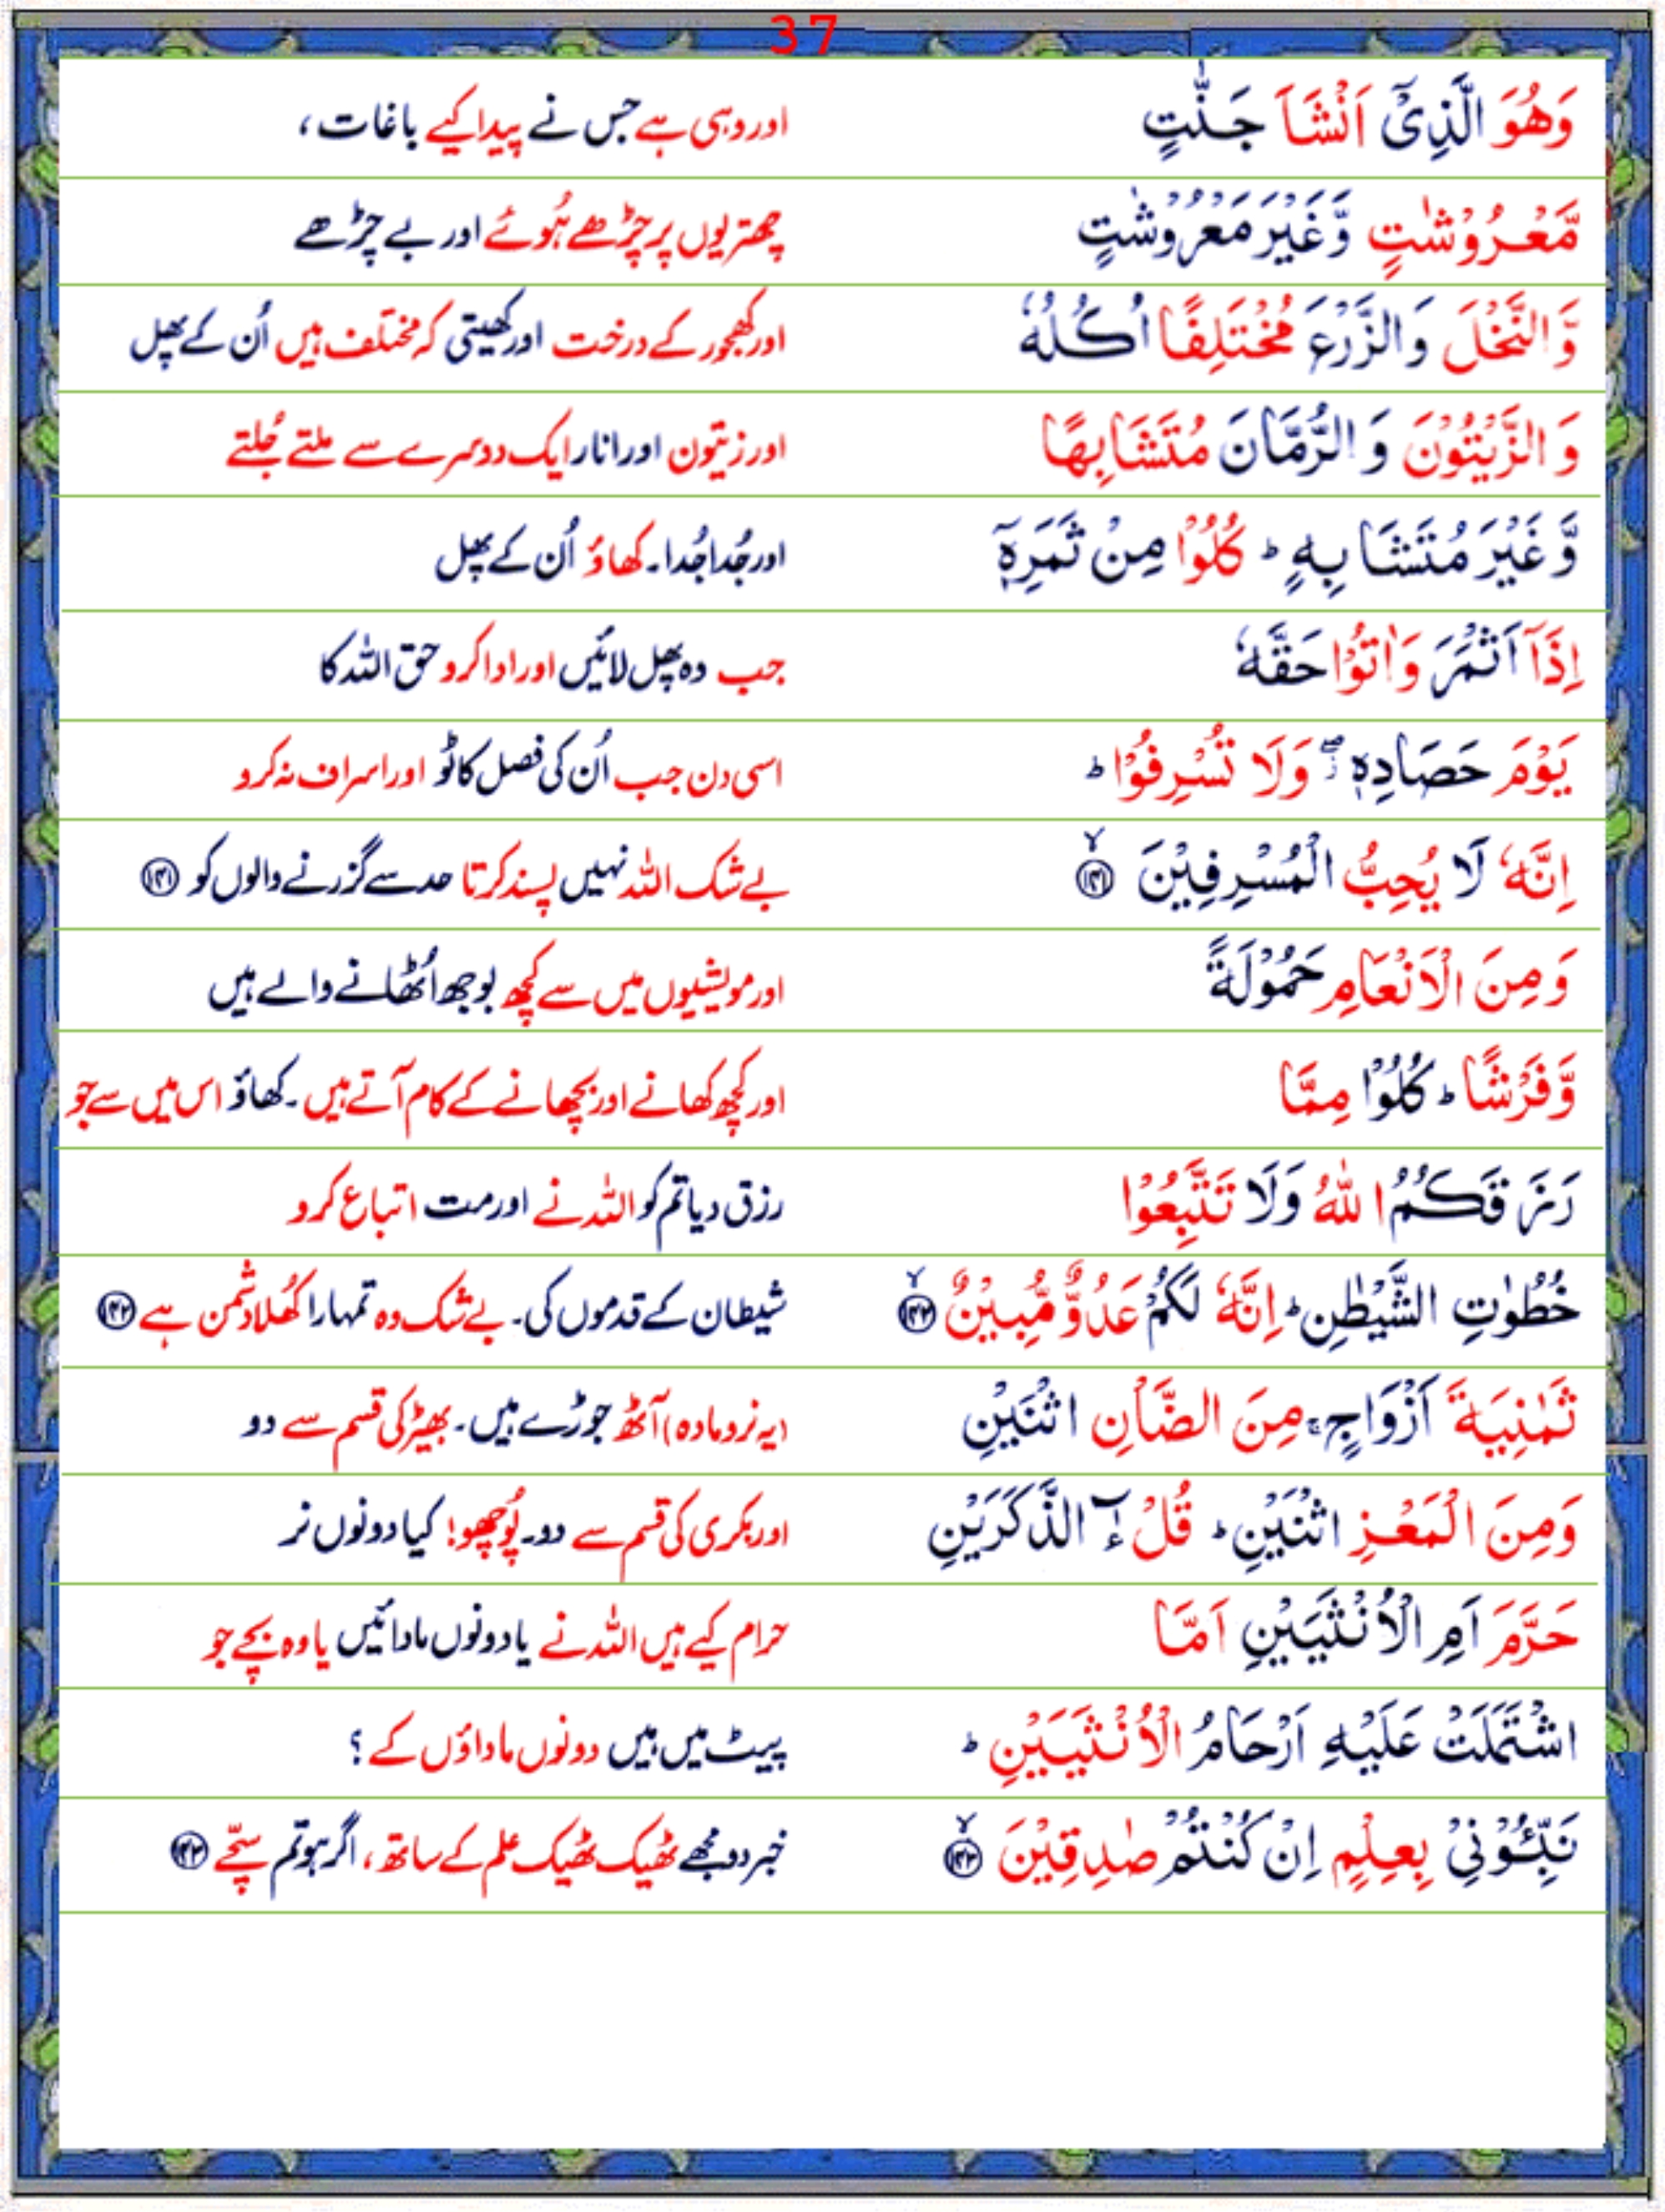 37
وَهُوَ الَّذِیْۤ اَنْشَاَ جَنّٰتٍ اور وہی ہے جس نے پیدا کیے باغات،
مَّعْرُوْشٰتٍ وَّغَیْرَ مَعْرُوْشٰتٍ چھتریوں پر چڑھے ہُوئے اور بے چڑھے
وَّالنَّخْلَ وَالزَّرْعَ مُخْتَلِفًا اُكُلُهٗ اور کھجور کے درخت اور کھیتی کہ مختلف ہیں اُن کے پھل
وَالزَّیْتُوْنَ وَالرُّمَّانَ مُتَشَابِهًا اور زیتون اور انار ایک دوسرے سے ملتے جُلتے
وَّغَیْرَ مُتَشَابِهٍ ؕ كُلُوْا مِنْ ثَمَرِهٖۤ اور جُدا جُدا۔ کھاؤ اُن کے پھل
اِذَاۤ اَثْمَرَ وَاٰتُوْا حَقَّهٗ جب وہ پھل لائیں اور ادا کرو حق اللہ کا
یَوْمَ حَصَادِهٖ ۖؗ وَلَا تُسْرِفُوْا ؕ اسی دن جب اُن کی فصل کاٹو اور اسراف نہ کرو
اِنَّهٗ لَا یُحِبُّ الْمُسْرِفِیْنَ ۙ﴿۱۴۱﴾ بے شک اللہ نہیں پسند کرتا حد سے گزرنے والوں کو ﴿۱۴۱﴾
وَمِنَ الْاَنْعَامِ حَمُوْلَةً اور مویشیوں میں سے کچھ بوجھ اُٹھانے والے ہیں
وَّفَرْشًا ؕ كُلُوْا مِمَّا اور کچھ کھانے اور بچھانے کے کام آتے ہیں۔ کھاؤ اس میں سے جو
رَزَقَكُمُ اللّٰهُ وَلَا تَتَّبِعُوْا رزق دیا تم کو اللہ نے اور مت اتباع کرو
خُطُوٰتِ الشَّیْطٰنِ ؕ اِنَّهٗ لَكُمْ عَدُوٌّ مُّبِیْنٌ ۙ﴿۱۴۲﴾ شیطان کے قدموں کی۔ بے شک وہ تمہارا کُھلا دشمن ہے ﴿۱۴۲﴾
ثَمٰنِیَةَ اَزْوَاجٍ ۚ مِنَ الضَّاْنِ اثْنَیْنِ (یہ نر و مادہ) آٹھ جوڑے ہیں۔ بھیڑ کی قسم سے دو
وَمِنَ الْمَعْزِ اثْنَیْنِ ؕ قُلْ ءٰٓالذَّكَرَیْنِ اور بکری کی قسم سے دو۔ پُوچھو! کیا دونوں نر
حَرَّمَ اَمِ الْاُنْثَیَیْنِ اَمَّا حرام کیے ہیں اللہ نے یا دونوں مادائیں یا وہ بچے جو
اشْتَمَلَتْ عَلَیْهِ اَرْحَامُ الْاُنْثَیَیْنِ ؕ پیٹ میں ہیں دونوں ماداؤں کے ؟
نَبِّـُٔوْنِیْ بِعِلْمٍ اِنْ كُنْتُمْ صٰدِقِیْنَ ۙ﴿۱۴۳﴾ خبر دو مجھے ٹھیک ٹھیک علم کے ساتھ، اگر ہو تم سچّے ﴿۱۴۳﴾